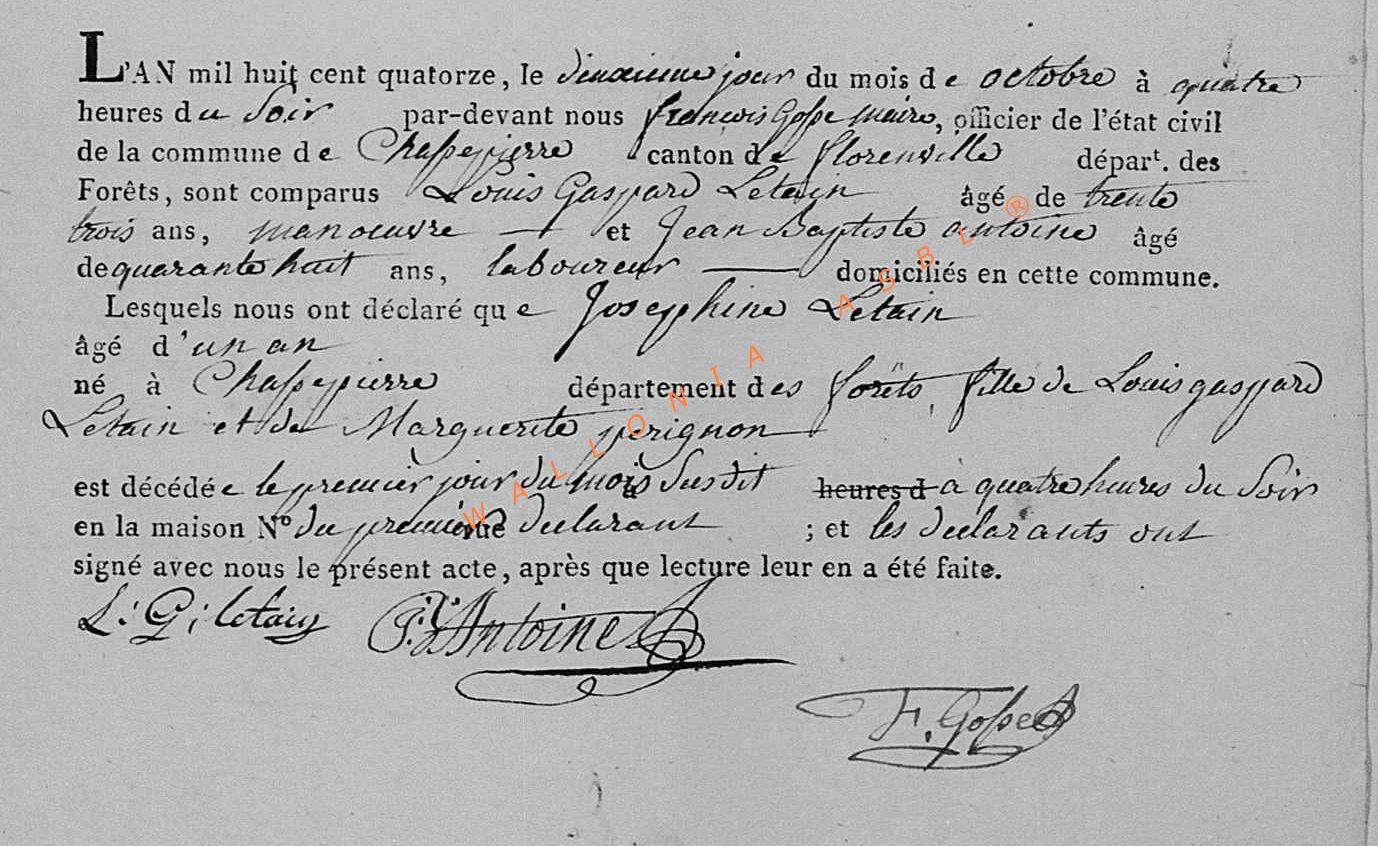 L'AN mil huit cent quatorze, le deuxieme jour du mois de octobre à quatre
heures du Soir par-devant nous françois Gosse maire, officier de l'état civil
de la commune de Chassepierre canton de florenville départ. des
Forêts, sont comparus Louis Gaspard Letain âgé de trente
trois ans, manoeuvre — et Jean Baptiste antoine âgé
de quarante huit ans, laboureur — domiciliés en cette commune.
Lesquels nous ont déclaré que Josephine Letain
âgé d'un an
né à Chassepierre département des forêts, fille de Louis gaspard
Letain et de Marguerite perignon
est décédée le premier jour du mois Susdit heures d à quatre heures du Soir
en la maison N° du premier rue declarant ; et les declarants ont
signé avec nous le présent acte, après que lecture leur en a été faite.
L. G. letain J. Antoine
F. Gosse
WALLONIA ASBL ®